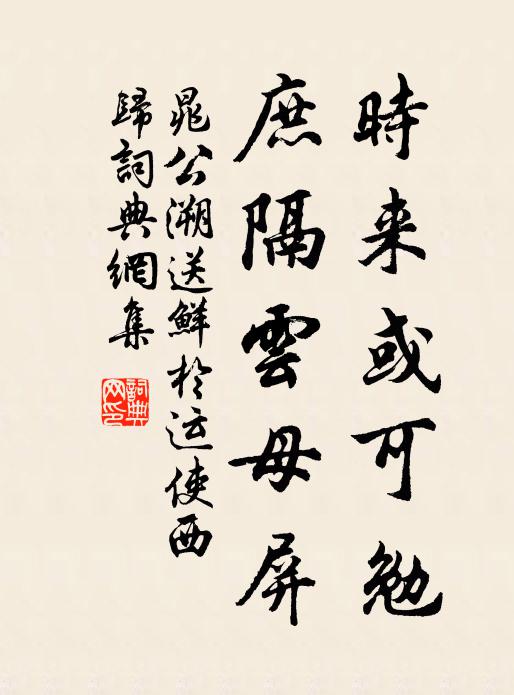 時来或可勉
庶隔雲母屏
晁公溯送鮮於运使西
歸詞典網集
詞典
网印